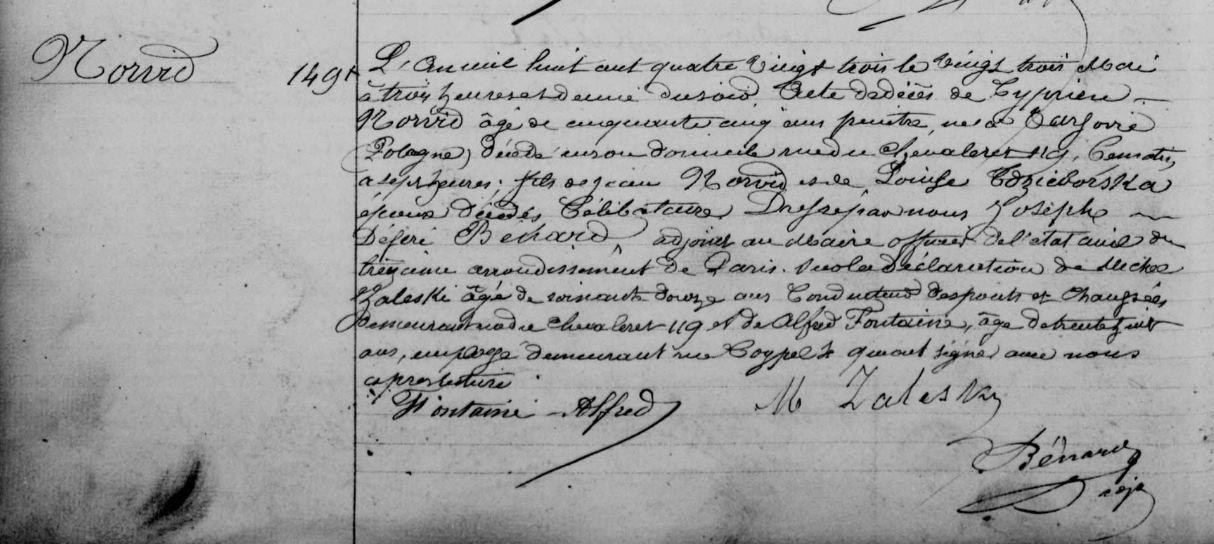 Norvid
1491
L'An mil huit cent quatre vingt trois le vingt trois Mai
à trois heures et demie du soir. Acte de décès de Cyprien
Norvid âgé de cinquante cinq ans peintre, né à Varsovie
(Pologne) décédé en son domicile rue du Chevaleret 119, ce matin,
à sept heures; fils de Jean Norvid et de Louise Edzieborska
époux décédés Célibataire, Dressé par nous Joseph
Désiré Benard, adjoint au Maire officier de l'état civil du
treizième arrondissement de Paris. sur la Déclaration de Michel
Zaleski âgé de soixante douze ans Conducteur des ponts et chaussées
demeurant rue du Chevaleret 119 et de Alfred Fontaine, âgé de trente huit
ans, employé demeurant rue Coypel qui ont signé avec nous
après lecture
Fontaine Alfred M Zalesky
Bénard
adj